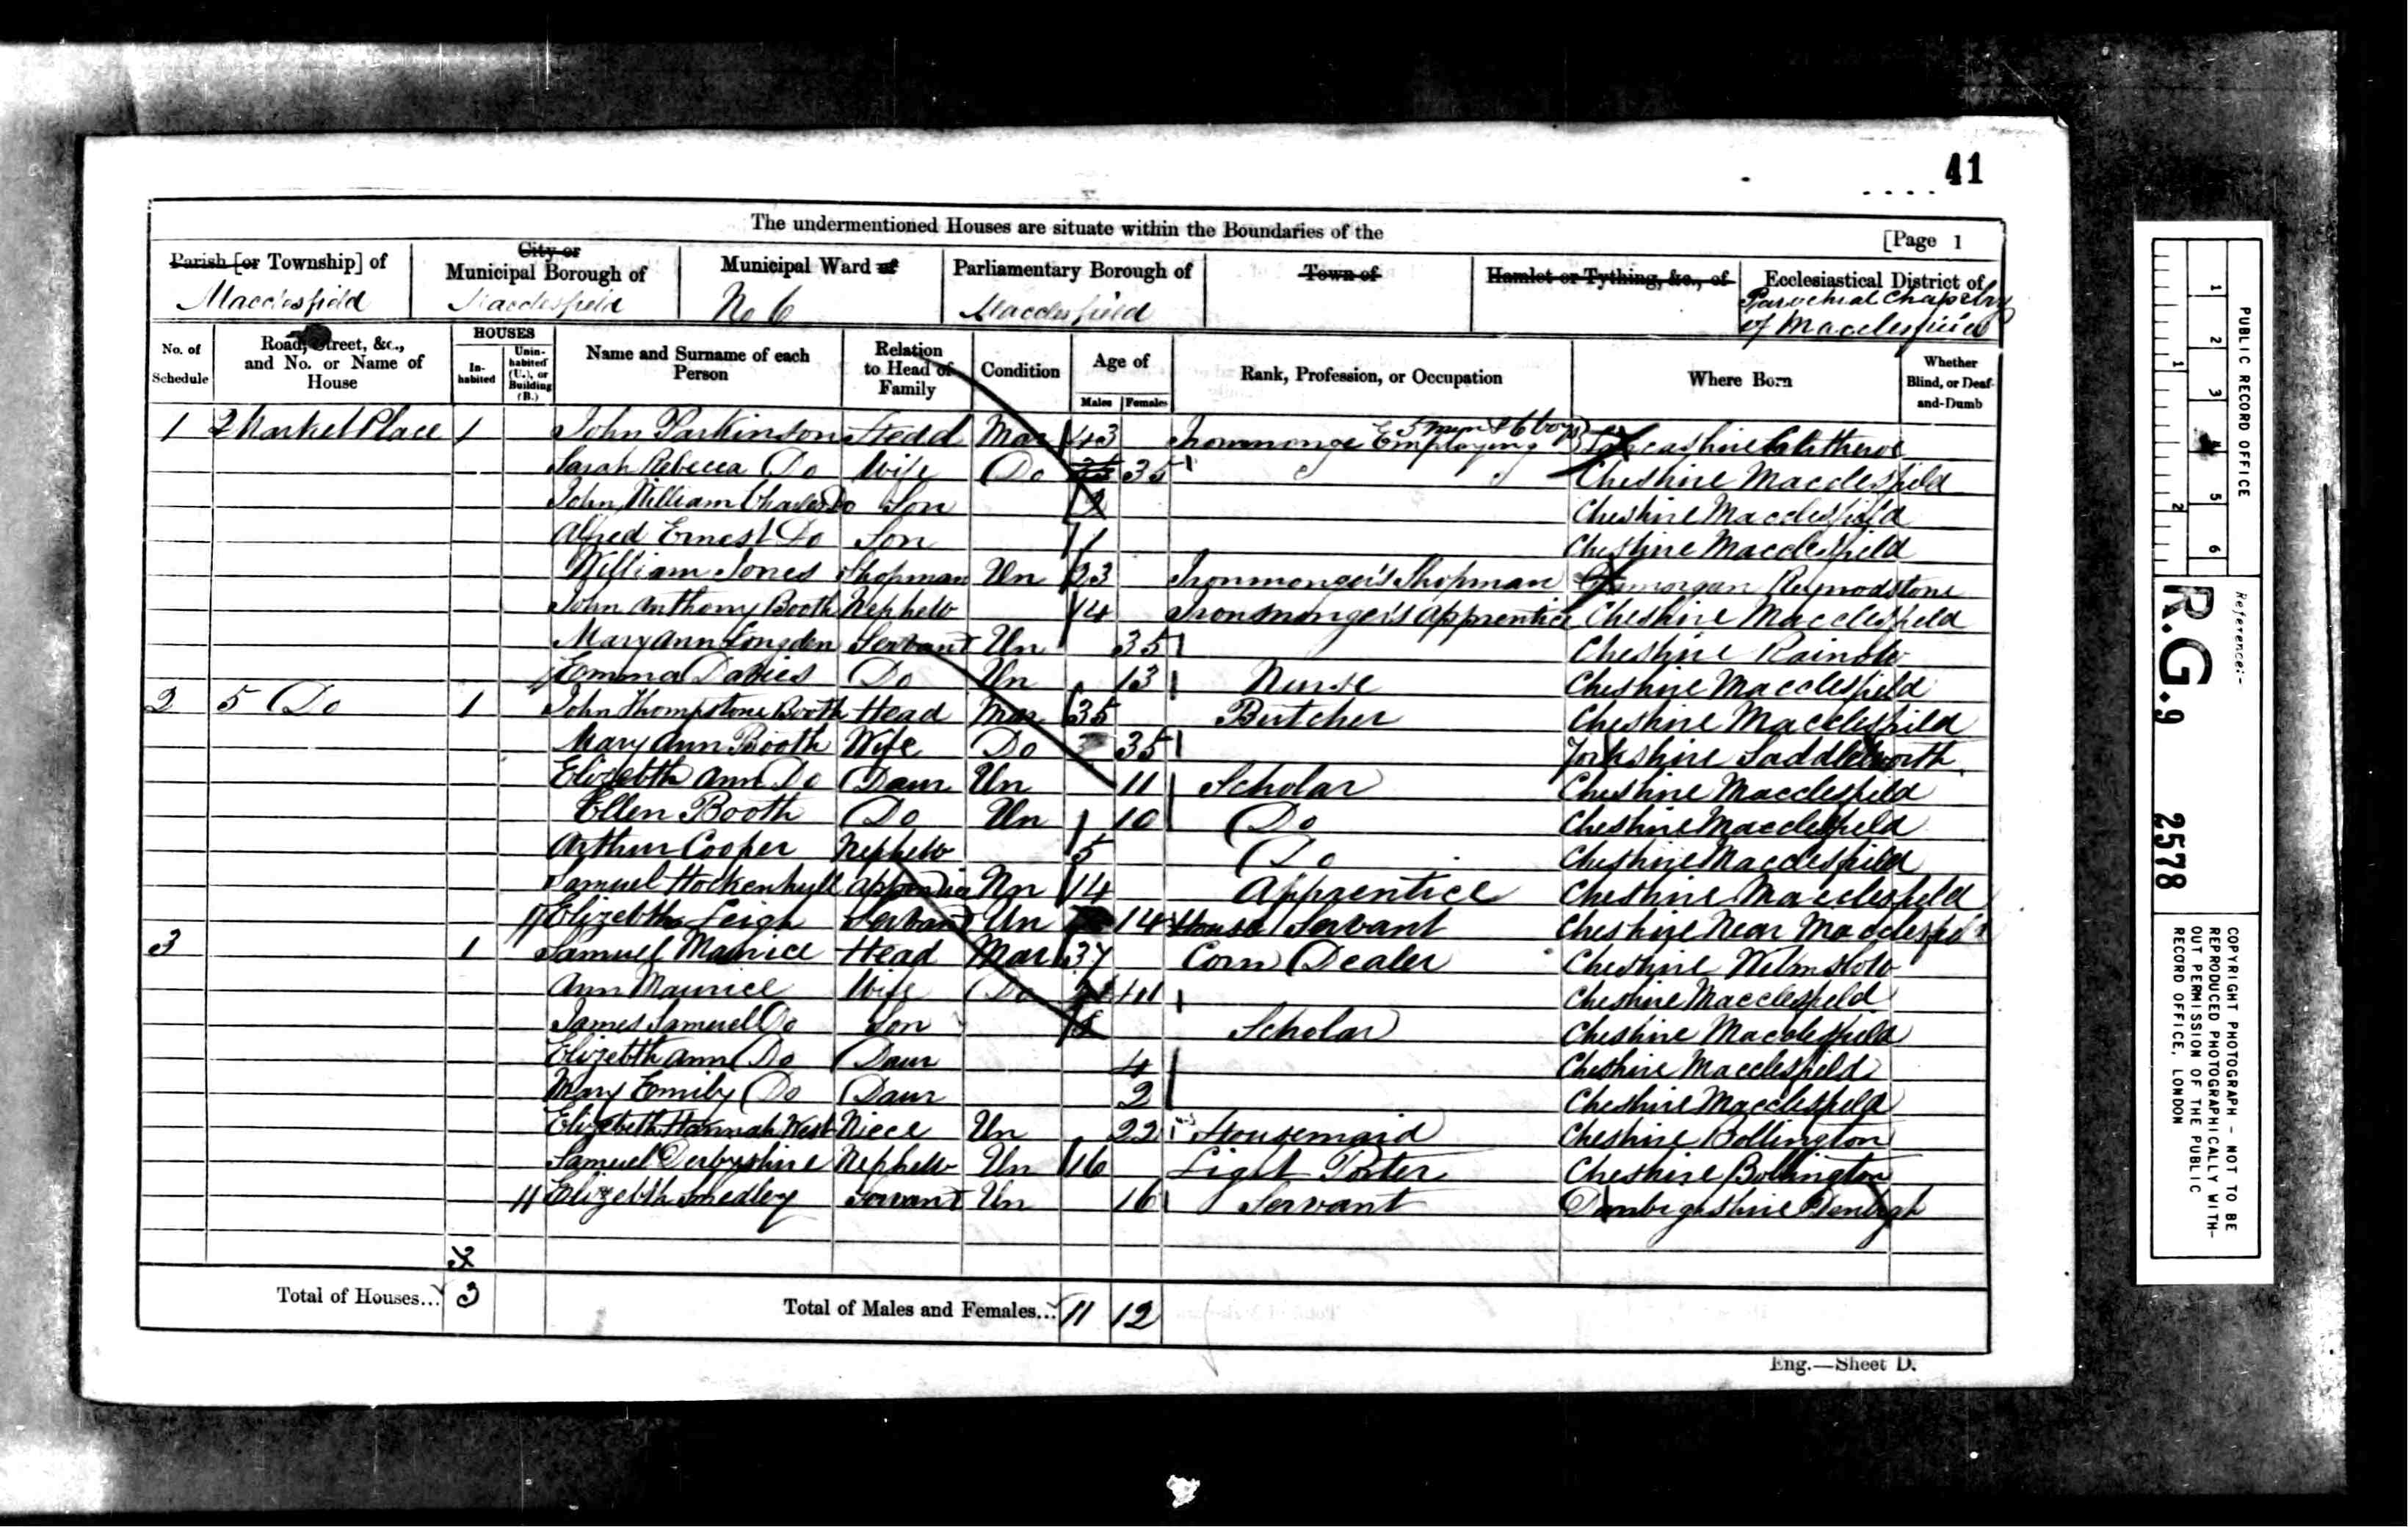 41
The undermentioned Houses are situate within the Boundaries of the
[Page 1
Parish [or Township] of
Macclesfield
City or
Municipal Borough of
Macclesfield
Municipal Ward of
No 6
Parliamentary Borough of
Macclesfield
Town of
Hamlet or Tything, &c., of
Ecclesiastical District of
Parochial Chapelry
of Macclesfield
No. of Schedule
Road, Street, &c., and No. or Name of House
HOUSES
In-habited
Unin-habited (U.), or Building (B.)
Name and Surname of each Person
Relation to Head of Family
Condition
Age of
Males Females
Rank, Profession, or Occupation
Where Born
Whether Blind, or Deaf-and-Dumb
1 2 Market Place 1 John Parkinson Head Mar 43 Ironmonger Employing 5 men & 6 boys Lancashire Clitheroe
Sarah Rebecca Do Wife Do 35 Cheshire Macclesfield
John William Charles Do Son Cheshire Macclesfield
Alfred Ernest Do Son 1 Cheshire Macclesfield
William Jones Shopman Un 23 Ironmonger's Shopman Glamorgan
John Anthony Booth Nephew 14 Ironmonger's Apprentice Cheshire Macclesfield
Mary Ann Longden Servant Un 35 Cheshire Rainow
Emma Davies Do Un 13 Nurse Cheshire Macclesfield
2 5 Do 1 John Thompstone Booth Head Mar 35 Butcher Cheshire Macclesfield
Mary Ann Booth Wife Do 35 Yorkshire Saddleworth
Elizebth Ann Do Daur Un 11 Scholar Cheshire Macclesfield
Ellen Booth Do Un 10 Do Cheshire Macclesfield
Arthur Cooper Nephew 5 Do Cheshire Macclesfield
Samuel Hockenhull Apprentice Un 14 Apprentice Cheshire Macclesfield
Elizebth Leigh Servant Un 14 House Servant Cheshire Near Macclesfield
3 1 Samuel Maurice Head Mar 37 Corn Dealer Cheshire Wilmslow
Ann Maurice Wife Do 41 Cheshire Macclesfield
James Samuel Do Son Scholar Cheshire Macclesfield
Elizebth Ann Do Daur 4 Cheshire Macclesfield
Mary Emily Do Daur 2 Cheshire Macclesfield
Elizebeth Hannah West Niece Un 22 Housemaid Cheshire Bollington
Samuel Derbyshire Nephew Un 16 Light Porter Cheshire Bollington
Elizebth Smedley Servant Un 16 Servant Denbighshire Denbigh
Total of Houses... 3
Total of Males and Females... 11 12
Eng.—Sheet D.
PUBLIC RECORD OFFICE
1 2 3 4 5 6
1 2
Reference:-
R.G. 9 2578
COPYRIGHT PHOTOGRAPH - NOT TO BE
REPRODUCED PHOTOGRAPHICALLY WITH-
OUT PERMISSION OF THE PUBLIC
RECORD OFFICE, LONDON